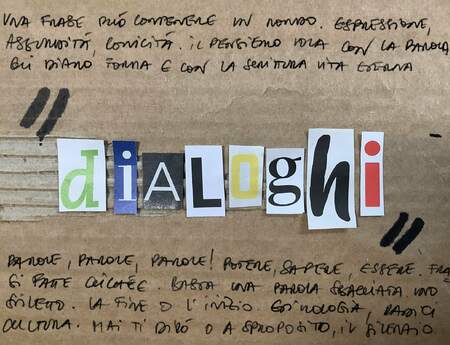 UNA FRASE PUÒ CONTENERE UN MONDO. ESPRESSIONE,
ASSURDITÁ, COMICITÁ. IL PENSIERO VOLA CON LA PAROLA
GLI DIAMO FORMA E CON LA SCRITTURA VITA ETERNA
"
diALOghi
"
PAROLE, PAROLE, PAROLE! POTERE, SAPERE, ESSERE. FRA
SI FATTE CLICHÉE. BASTA UNA PAROLA SBAGLIATA, UNO
LA FINE O L'INIZIO RADICI
CULTURA. MAI TI DIRÓ O A SPROPOSITO, IL SILENZIO